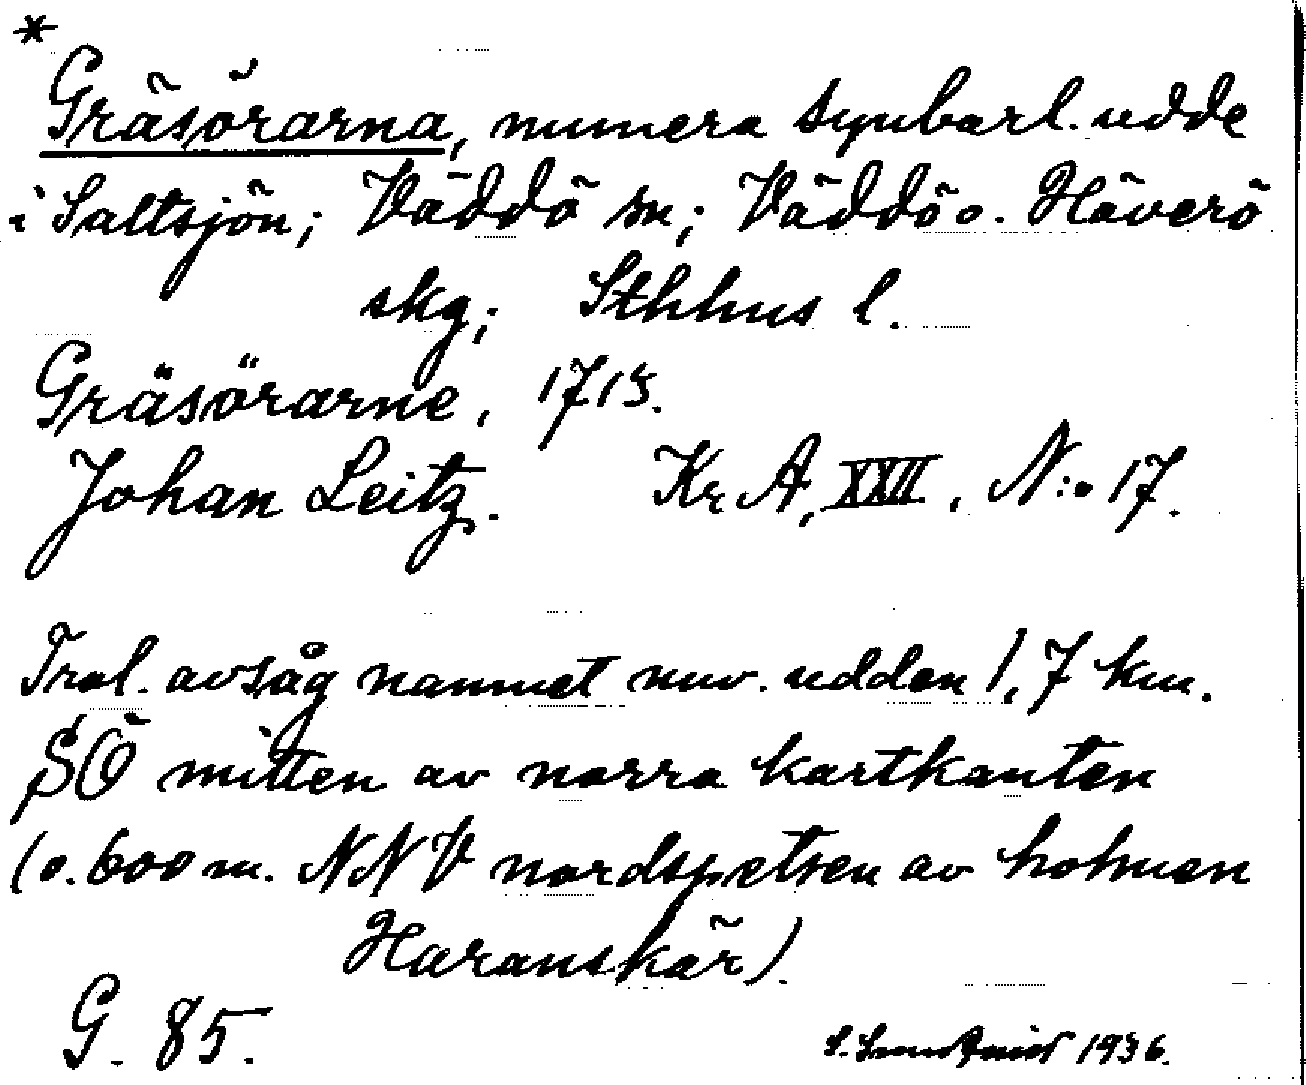 *
Gräsörarna, numera synbarl. udde
i Saltsjön; Väddö sn; Väddö o. Häverö
skg; Sthhus l.
Gräsörarne, 1715.
Johan Leitz. Kr A, XXII, N:o 17.
Trol. avsåg namnet nuv. udden 1,7 km.
SÖ mitten av norra kartkanten
(o. 600 m. NNV nordspetsen av holmen
Haranskär).
G. 85.
S. 1936.